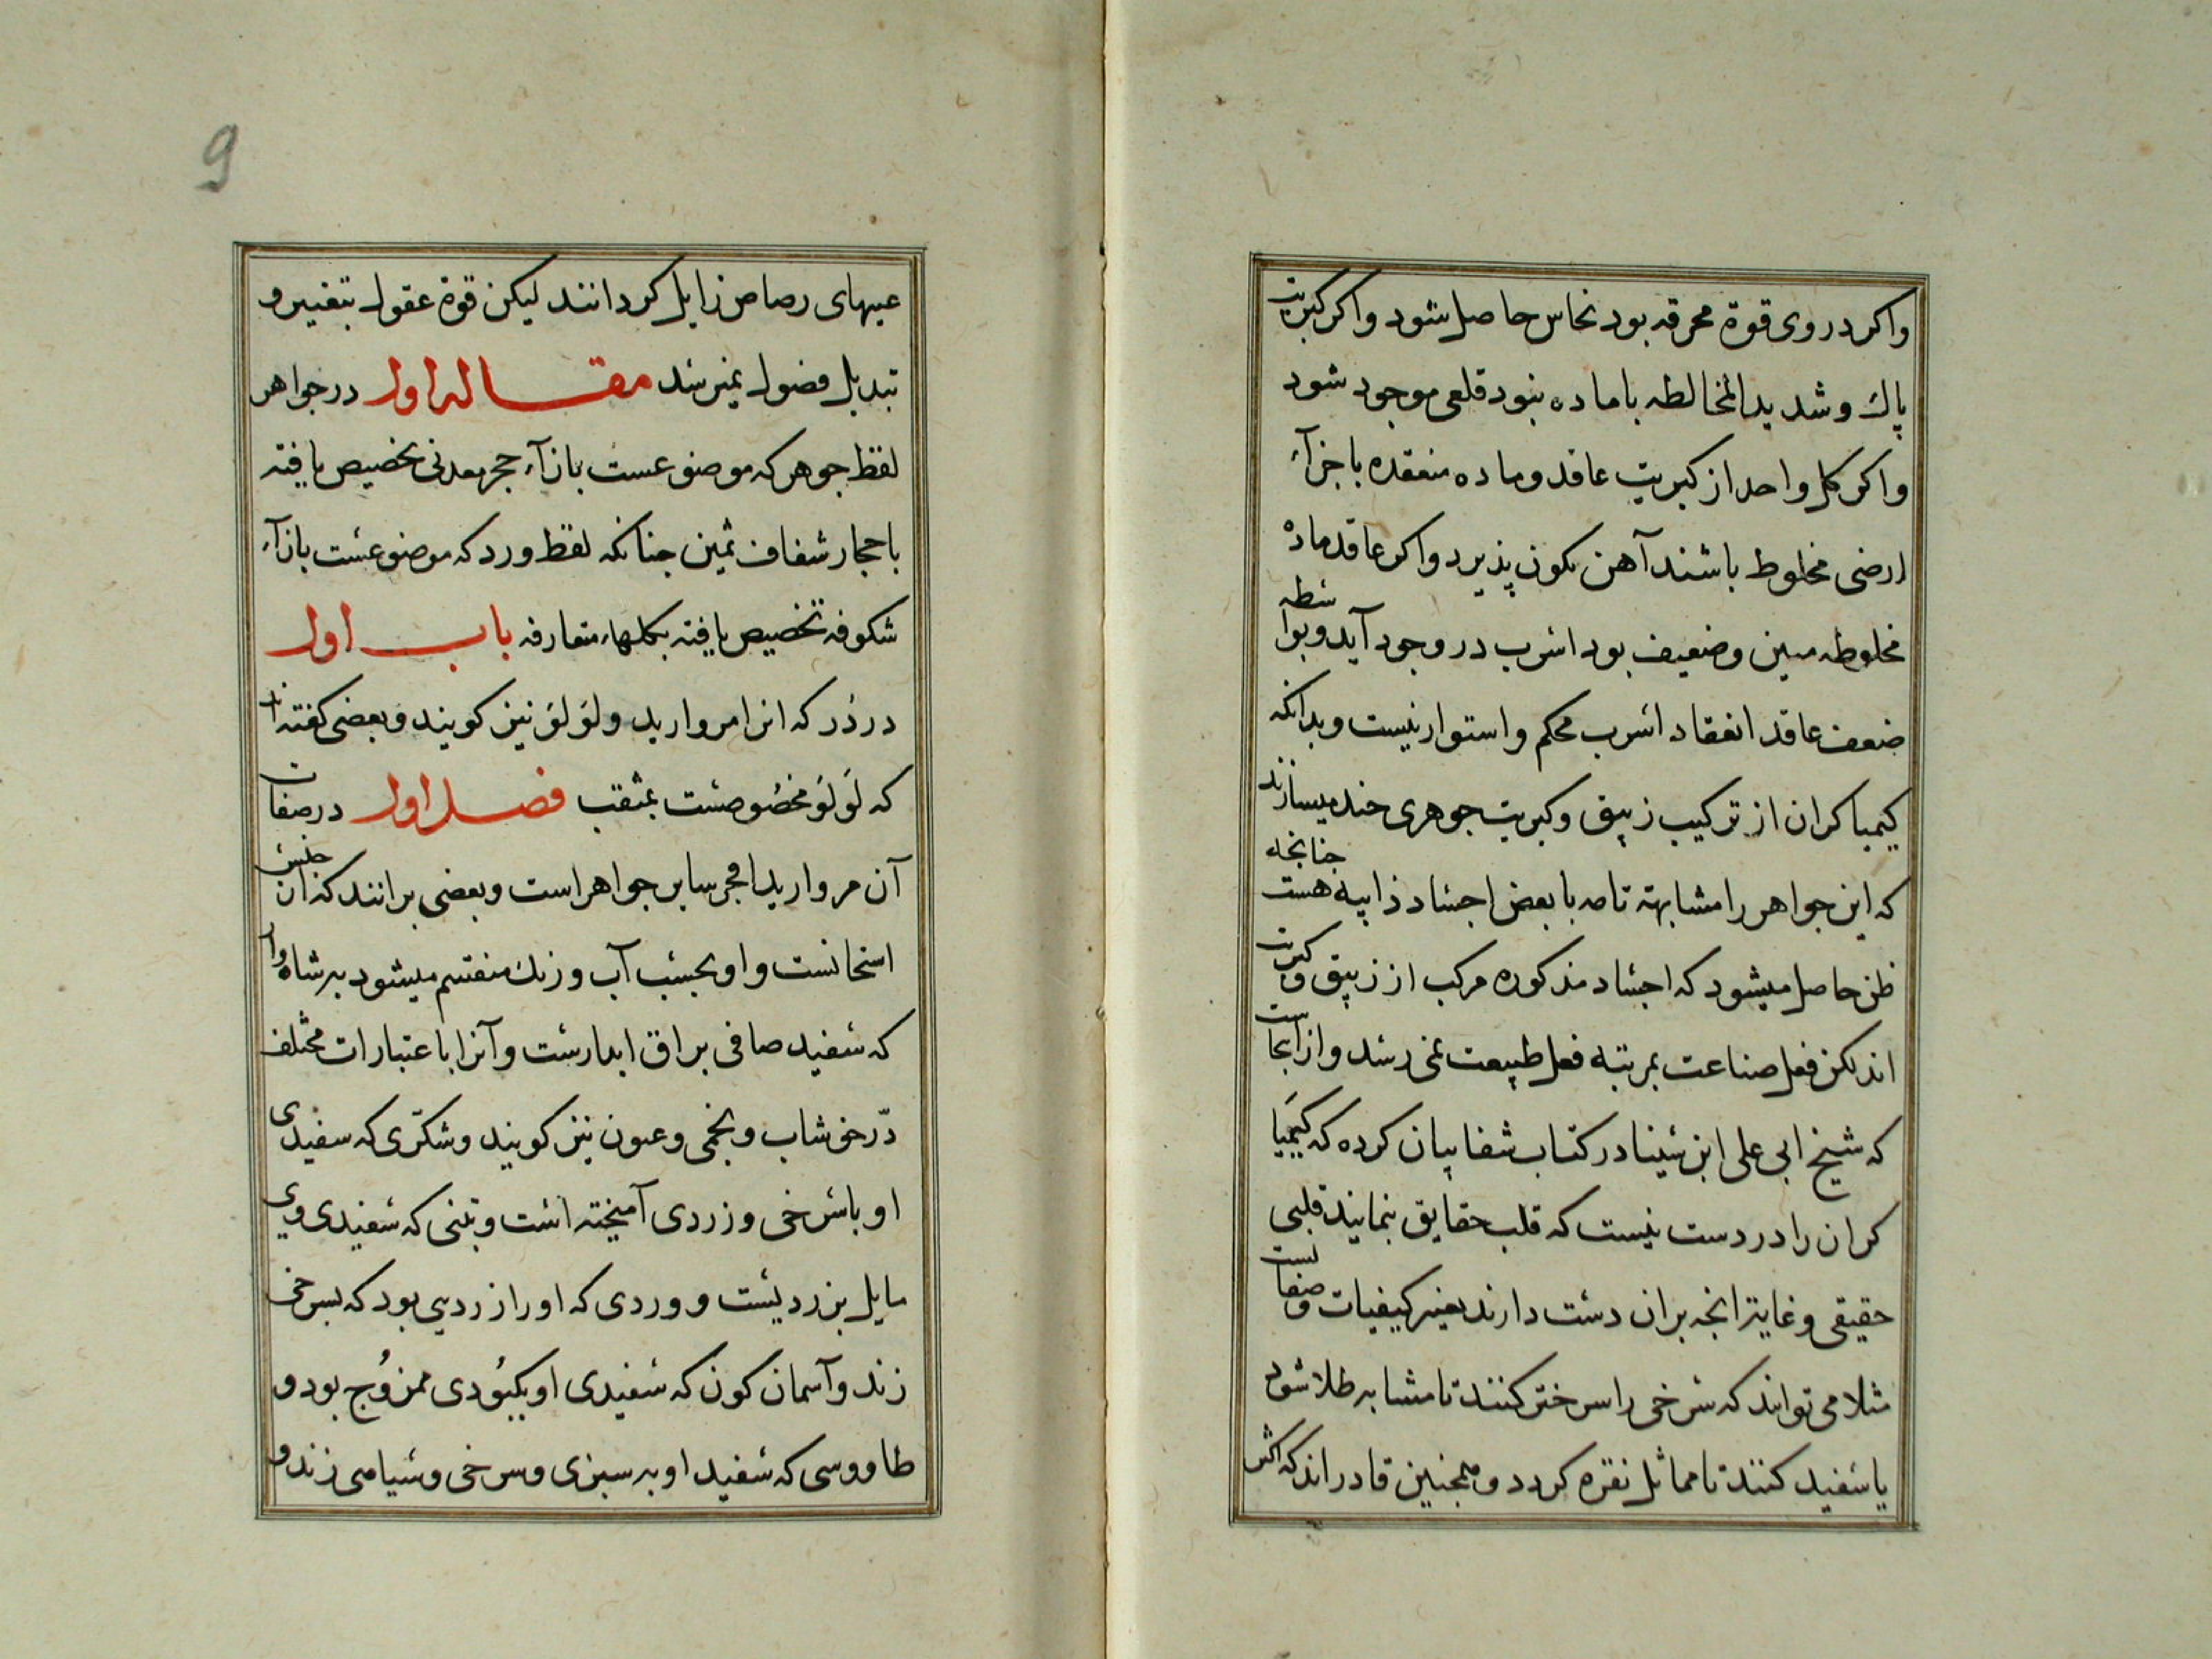 واکر در وی قوة محرقه بود نحاس حاصل شود واکر کبریت
پاك وشدید المخالطه باماده نبود قلعی موجود شود
واکر کل واحد از کبریت عاقد وماده منعقده باجزآء
ارضی مخلوط باشند آهن تکون پذیرد واکر عاقد ماده
مخلوطه مبین وضعیف بود اسرب در وجود آید وبواسطه
ضعف عاقد انعقاد اسرب محکم واستوار نیست وبدانکه
کیمیا کران از ترکیب زیبق وکبریت جوهری چند میسازند
که این جواهر را مشابهة تامه با بعض اجساد ذایبه هست چنانچه
ظن حاصل میشود که اجساد مذکوره مرکب از زیبق وکبریت
اند لکن فعل صناعت بمرتبه فعل طبیعت نمی رسد واز اینجاست
که شیخ ابی علی ابن سینا در کتاب شفا بیان کرده که کیمیا
کران را در دست نیست که قلب حقایق نمایند قلبی
حقیقی وغایتر انچه بران دست دارند تغییر کیفیات وصفاتست
مثلا می توانند که سرخی را سرختر کنند تا مشابه طلا شود
یا سفید کنند تا مماثل نقره کردد وهمچنین قادراند که اکثر
9
عیبهای رصاص زایل کردانند لیکن قوة عقول بتغییر و
تبدیل فصول نمیرسد مقاله اول در جواهر
لفظ جوهر که موضوعست بازآء حجر معدنی تخصیص یافته
باحجار شفاف ثمین چنانکه لفظ ورد که موضوعست بازآء
شکوفه تخصیص یافته بکلهاء متعارفه باب اول
در دُر که انرا مروارید ولؤلؤ نیز کویند وبعضی کفته‌اند
که لؤلؤ مخصُوصست بمثقب فصل اول در صفات
آن مروارید افجر سایر جواهر است وبعضی برانند که ان جنس
استخوانست واو بحسب آب ورنك منقسم میشود به شاه وار
که سفید صافی براق ابدارست وآنرا باعتبارات مختلف
دّر خوشاب ونجمی وعیون نیز کویند وشکّری که سفیدی
او باسرخی وزردی آمیخته است وتبنی که سفیدی وی
مایل بزردیست ووردی که اورا زردیی بود که بسرخی
زند وآسمان کون که سفیدی او بکبُودی ممزوُج بود و
طاووسی که سفید او به سبزی وسرخی وسیاهی زند و